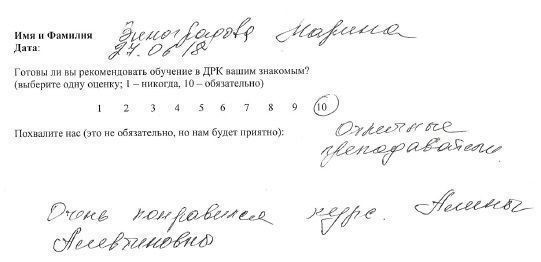 Имя и Фамилия Виноградова Марина
Дата: 27.06 18
Готовы ли вы рекомендовать обучение в ДРК вашим знакомым?
(выберите одну оценку; 1 – никогда, 10 – обязательно)
1 2 3 4 5 6 7 8 9 10
Похвалите нас (это не обязательно, но нам будет приятно): Отличные
преподаватели.
Очень понравился курс. Алины
Алевтиновны